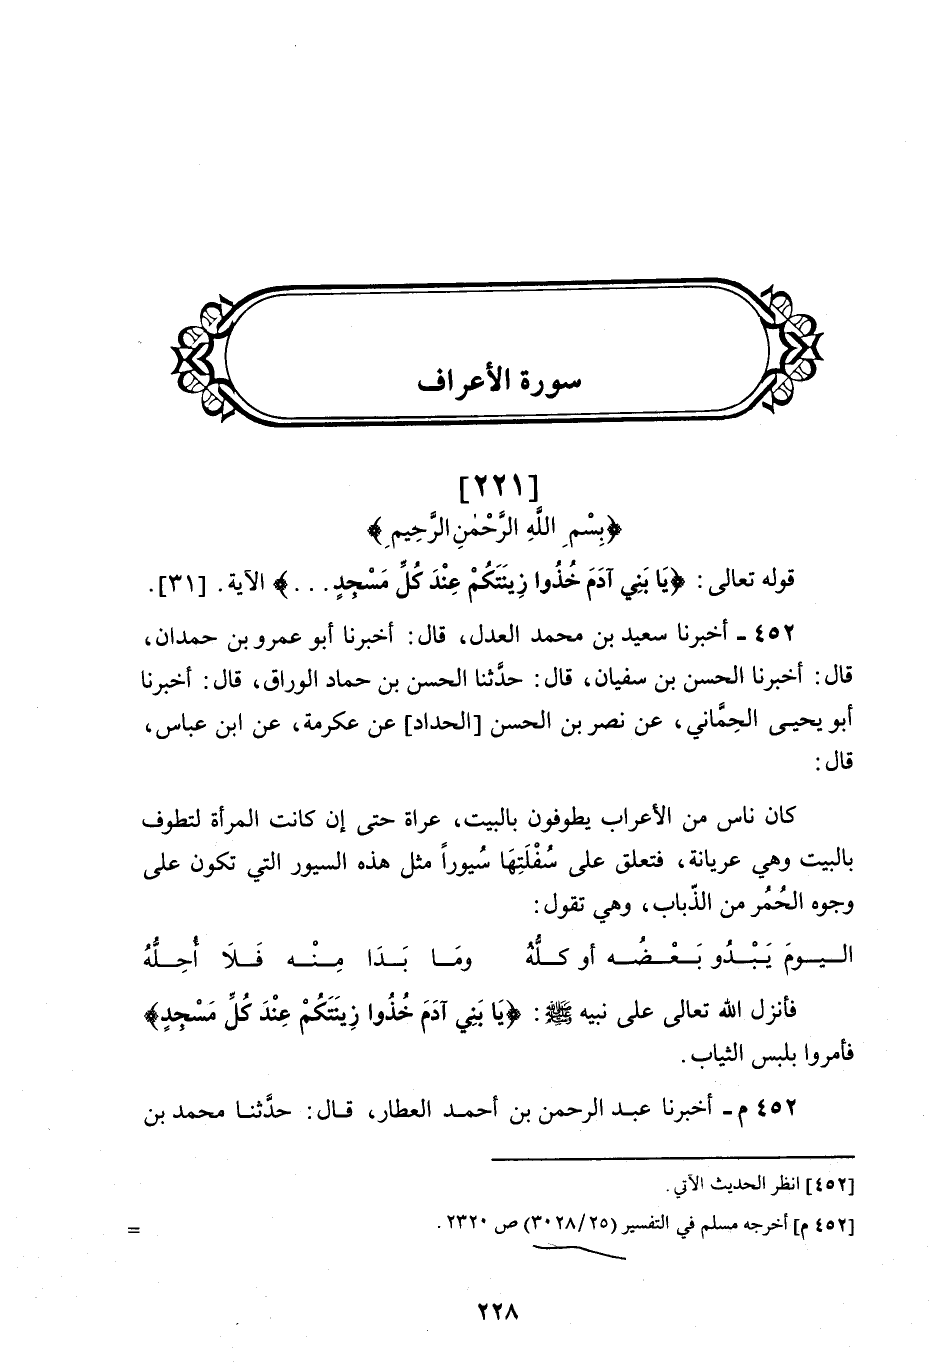 سورة الأعراف
[٢٢١]
﴿بِسْمِ اللَّهِ الرَّحْمٰنِ الرَّحِيمِ﴾
قوله تعالى: ﴿يَا بَنِي آدَمَ خُذُوا زِينَتَكُمْ عِنْدَ كُلِّ مَسْجِدٍ...﴾ الآية. [٣١].
٤٥٢ ـ أخبرنا سعيد بن محمد العدل، قال: أخبرنا أبو عمرو بن حمدان،
قال: أخبرنا الحسن بن سفيان، قال: حدَّثنا الحسن بن حماد الوراق، قال: أخبرنا
أبو يحيى الحِمَّاني، عن نصر بن الحسن [الحداد] عن عكرمة، عن ابن عباس،
قال:
كان ناس من الأعراب يطوفون بالبيت، عراة حتى إن كانت المرأة لتطوف
بالبيت وهي عريانة، فتعلق على سُفْلَتِهَا سُيوراً مثل هذه السيور التي تكون على
وجوه الحُمُر من الذّباب، وهي تقول:
اليومَ يَبْدُو بَعْضُه أو كلُّهُ ومَا بَدَا مِنْه فَلَا أُحِلُّهُ
فأنزل الله تعالى على نبيه ﷺ: ﴿يَا بَنِي آدَمَ خُذُوا زِينَتَكُمْ عِنْدَ كُلِّ مَسْجِدٍ﴾
فأمروا بلبس الثياب.
٤٥٢ م ـ أخبرنا عبد الرحمن بن أحمد العطار، قال: حدَّثنا محمد بن
[٤٥٢] انظر الحديث الآتي.
[٤٥٢ م] أخرجه مسلم في التفسير (٣٠٢٨/٢٥) ص ٢٣٢٠. =
٢٢٨